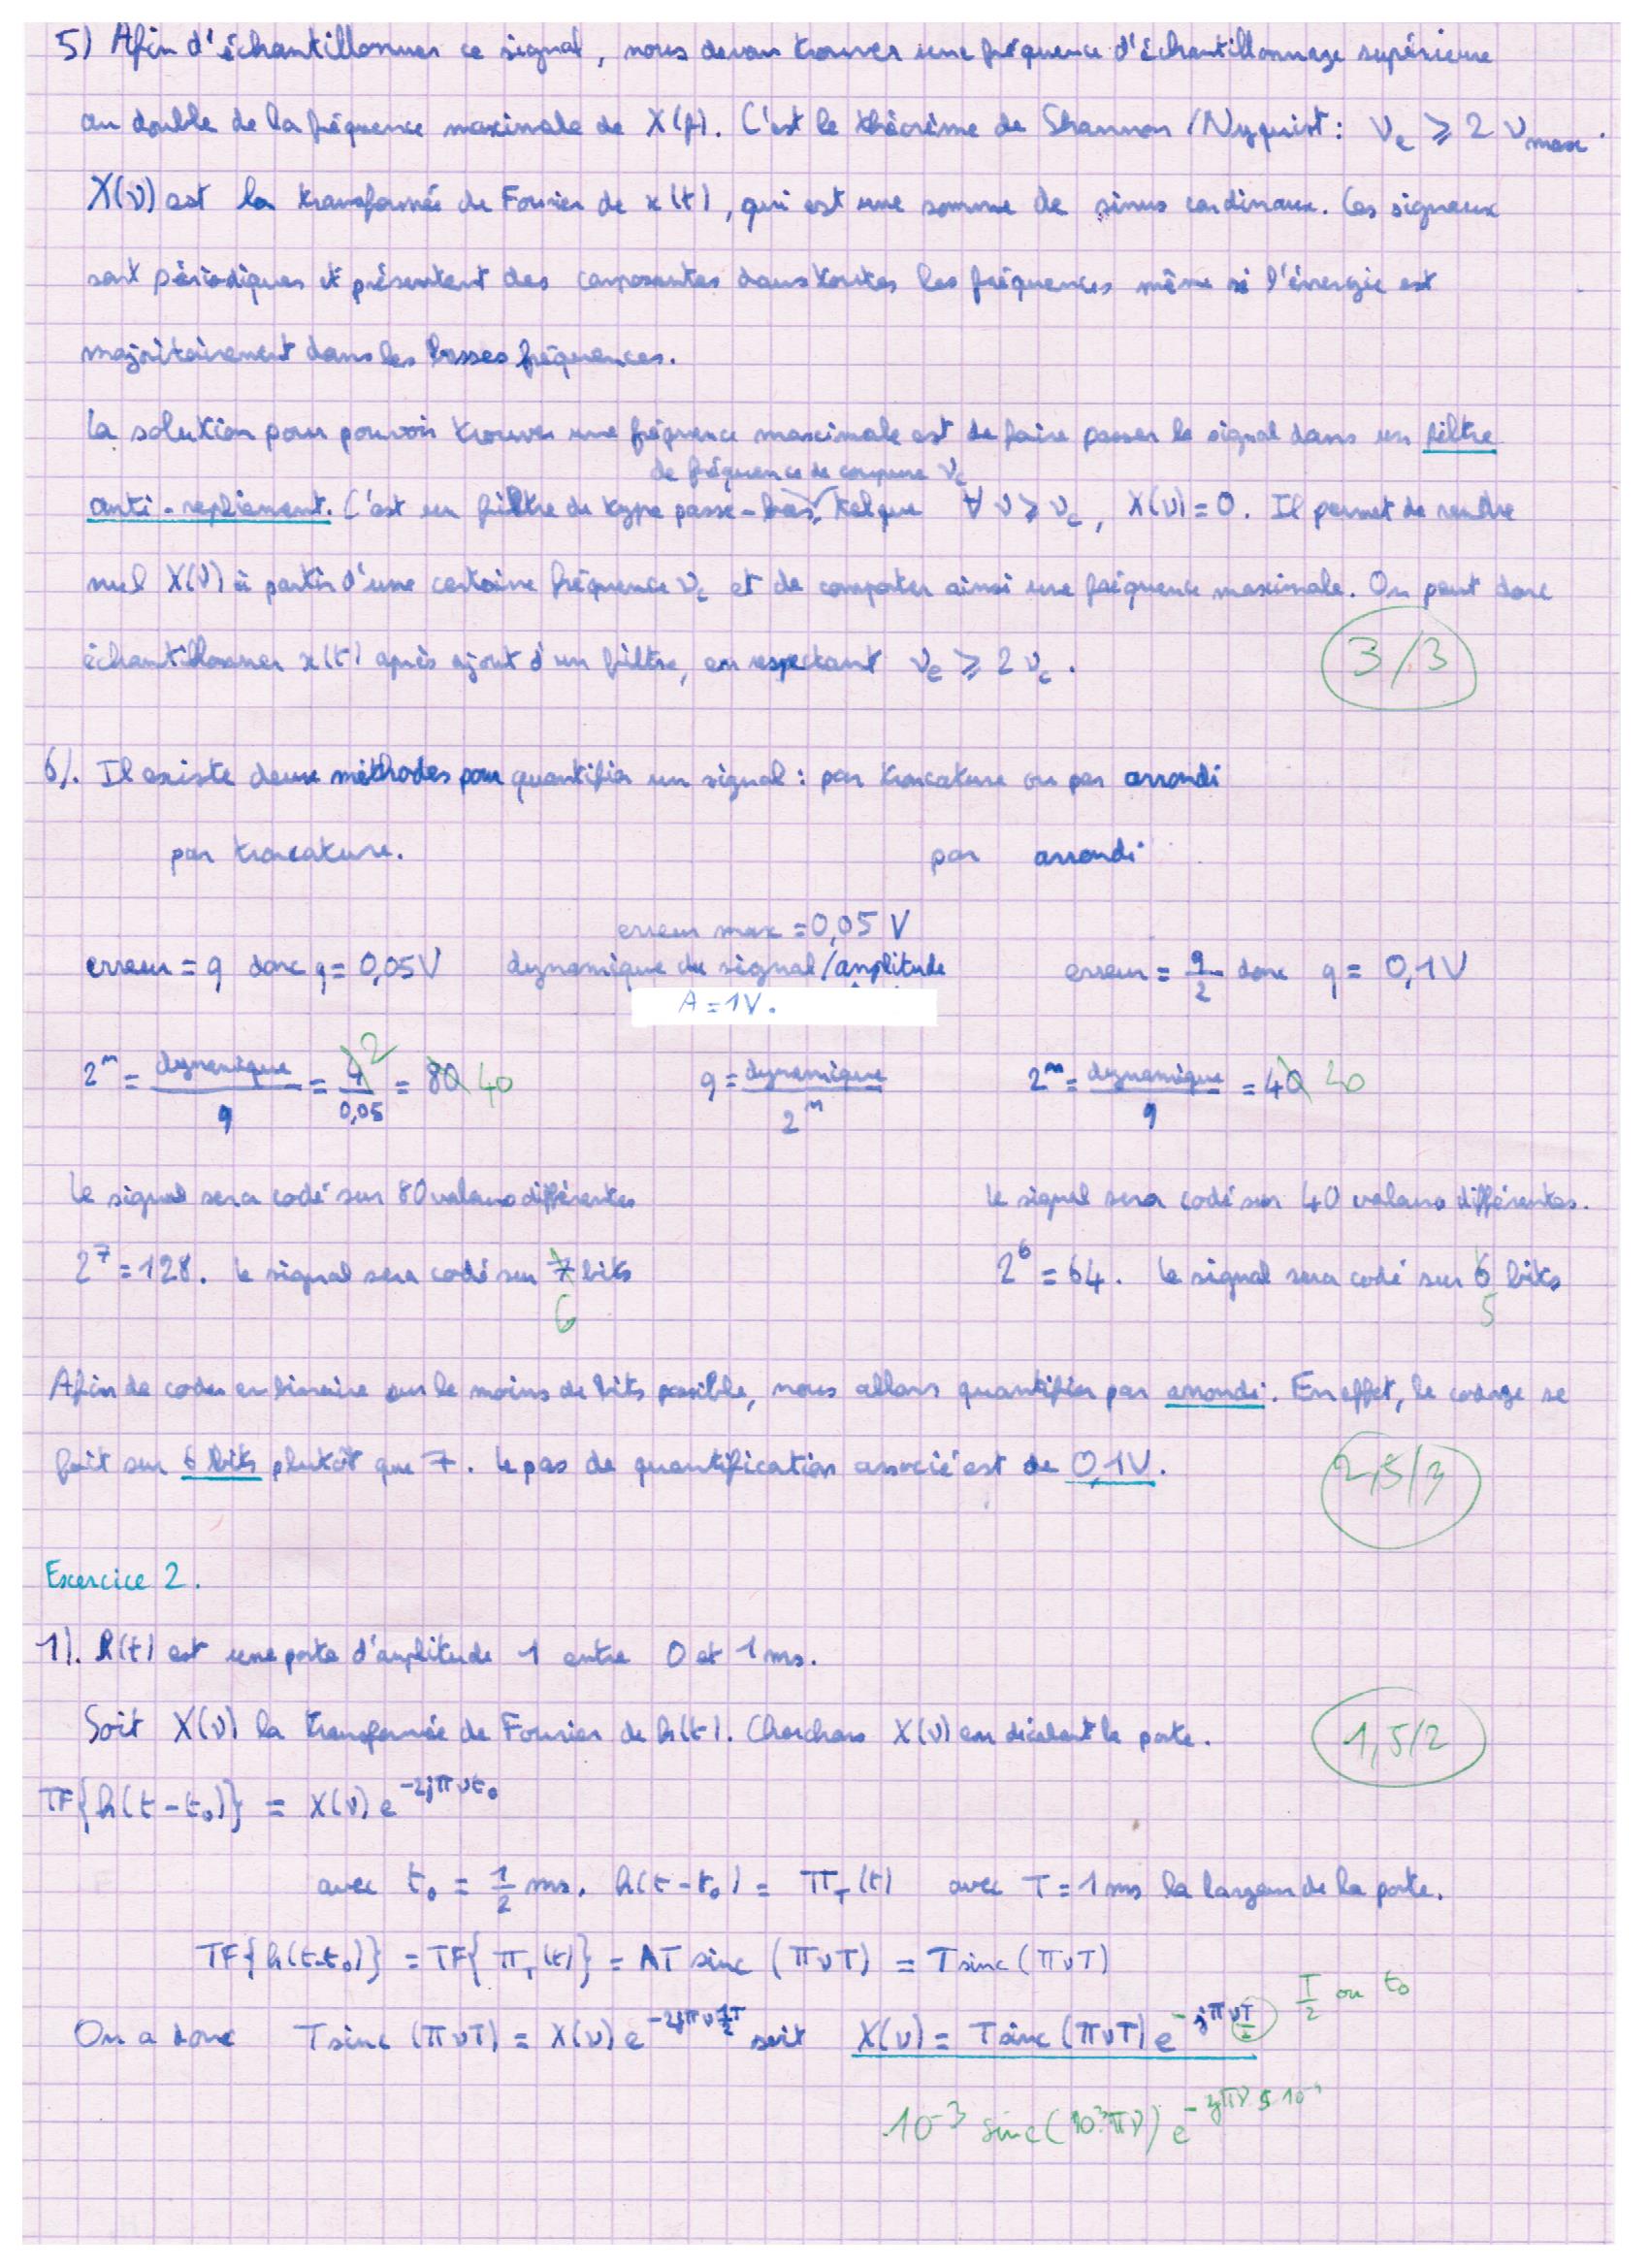 5) Afin d'échantillonner ce signal, nous devon trouver une fréquence d'échantillonnage supérieure
au double de la fréquence maximale de X(f). C'est le théorème de Shannon / Nyquist : νe ⩾ 2 νmax.
X(ν) est la transformée de Fourier de x(t), qui est une somme de sinus cardinaux. Ces signaux
sont périodiques et présentent des composantes dans toutes les fréquences même si l'énergie est
majoritairement dans les basses fréquences.
La solution pour pouvoir trouver une fréquence maximale est de faire passer le signal dans un filtre
de fréquence de coupure νc
anti-repliement. C'est un filtre de type passe-bas, tel que ∀ ν ⩾ νc, X(ν) = 0. Il permet de rendre
nul X(ν) à partir d'une certaine fréquence νc et de comporter ainsi une fréquence maximale. On peut donc
échantillonner x(t) après ajout d'un filtre, en respectant νe ⩾ 2 νc.
3/3
6). Il existe deux méthodes pour quantifier un signal : par troncature ou par arrondi
par troncature. par arrondi
erreur max = 0,05 V
erreur = q donc q = 0,05V dynamique du signal / amplitude erreur = q/2 donc q = 0,1V
A = 1V.
2^n = dynamique/q = 4/0,05 = 80 2 40 q = dynamique/2^n 2^n = dynamique/q = 40 20
Le signal sera codé sur 80 valeurs différentes Le signal sera codé sur 40 valeurs différentes.
2^7 = 128. Le signal sera codé sur 7 bits 2^6 = 64. Le signal sera codé sur 6 bits
6 5
Afin de coder en binaire sur le moins de bits possible, nous allons quantifier par arrondi. En effet, le codage se
fait sur 6 bits plutôt que 7. Le pas de quantification associé est de 0,1V.
2,5/3
Exercice 2.
1). h(t) est une porte d'amplitude 1 entre 0 et 1 ms.
Soit X(ν) la transformée de Fourier de h(t). Cherchons X(ν) en décalant la porte.
1,5/2
TF{h(t-t₀)} = X(ν) e^(-2jπνt₀)
avec t₀ = 1/2 ms. h(t-t₀) = Π_T(t) avec T = 1 ms la largeur de la porte.
TF{h(t-t₀)} = TF{Π_T(t)} = AT sinc (πνT) = T sinc (πνT)
T/2 ou t₀
On a donc T sinc (πνT) = X(ν) e^(-2jπν T/2) soit X(ν) = T sinc (πνT) e^(-jπν T/2)
10^-3 sinc(10^3 πν) e^(-2jπν 5 10^-4)